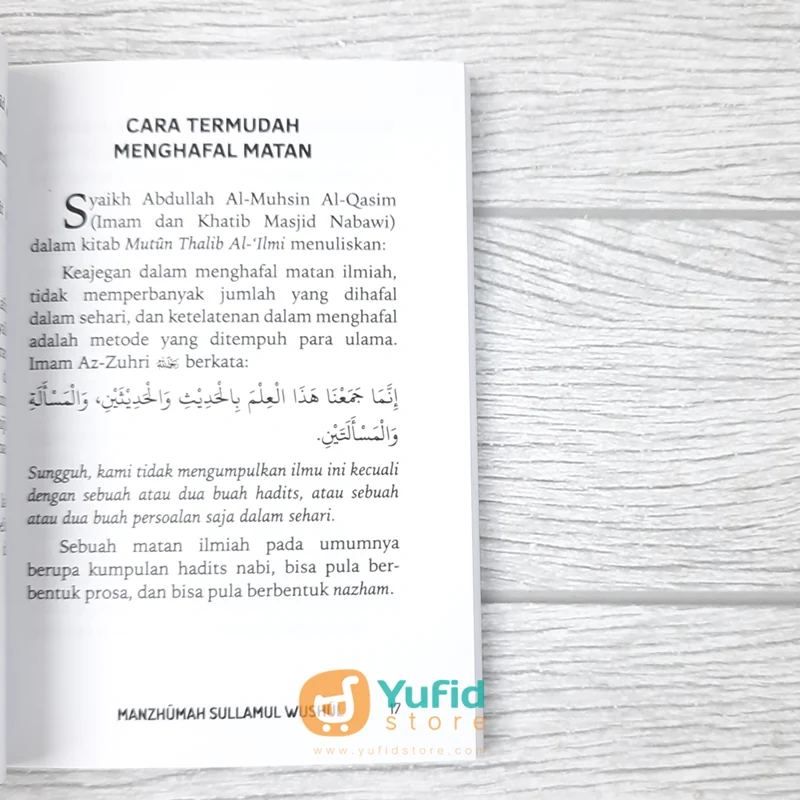 CARA TERMUDAH
MENGHAFAL MATAN
Syaikh Abdullah Al-Muhsin Al-Qasim
(Imam dan Khatib Masjid Nabawi)
dalam kitab Mutûn Thalib Al-‘Ilmi menuliskan:
Keajegan dalam menghafal matan ilmiah,
tidak memperbanyak jumlah yang dihafal
dalam sehari, dan ketelatenan dalam menghafal
adalah metode yang ditempuh para ulama.
Imam Az-Zuhri berkata:
إِنَّمَا جَمَعْنَا هَذَا الْعِلْمَ بِالْحَدِيْثِ وَالْحَدِيْثَيْنِ، وَالْمَسْأَلَةِ
وَالْمَسْأَلَتَيْنِ.
Sungguh, kami tidak mengumpulkan ilmu ini kecuali
dengan sebuah atau dua buah hadits, atau sebuah
atau dua buah persoalan saja dalam sehari.
Sebuah matan ilmiah pada umumnya
berupa kumpulan hadits nabi, bisa pula ber-
bentuk prosa, dan bisa pula berbentuk nazham.
MANZHÛMAH SULLAMUL 17
Yufid
store
www.yufidstore.com